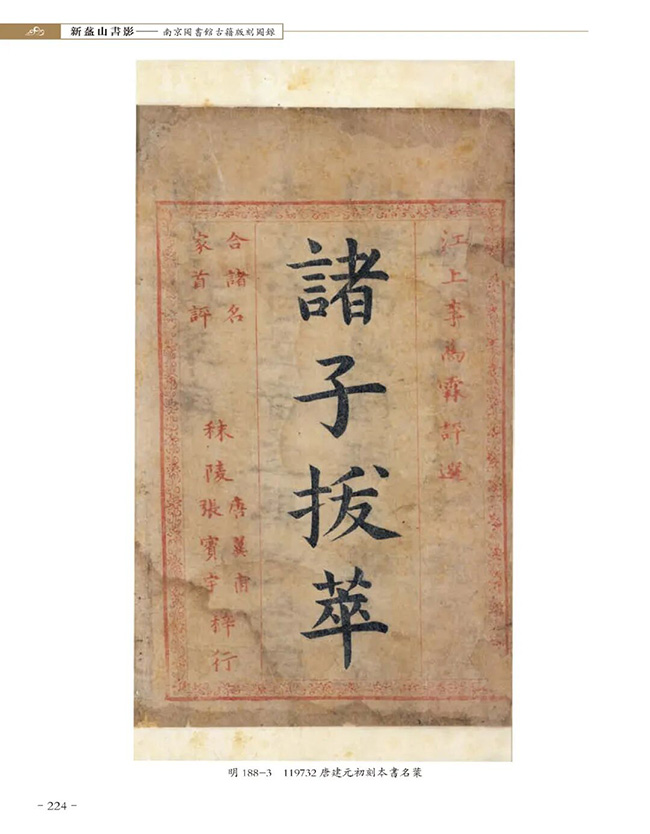 新盋山書影——南京圖書館古籍版刻圖錄
江上李為霖評選
諸子拔萃
合諸名
家首評
秣陵
唐翼甫
張賓宇
梓行
明188-3 119732唐建元初刻本書名葉
- 224 -